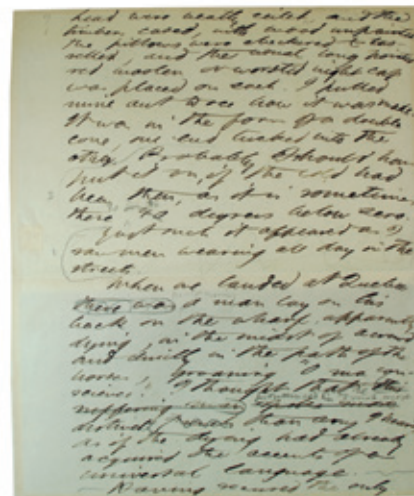 head were neatly ceiled, and the
timber cased, with wood unpainted
the pillows were checkered & tas-
selled, and the usual long pointed
red woolen or worsted night cap
was placed on each. I pulled
mine out to see how it was made.
It was in the form of a double
cone, one end tucked into the
other. Probably I should have
put it on, if the cold had
been then, as it is sometimes
there degrees below zero.
Just such it appeared as I
saw men wearing all day in the
streets.
When we landed at Quebec
there was a man lay on his
back on the wharf, apparently
dying, in the midst of a crowd
and directly in the path of the
horses, groaning O ma con-
science! I thought that
suffering
distinctly than any I heard
as if the dying had already
acquired the accents of a
universal language.
Having secured the only